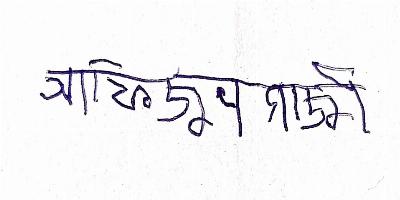 আফিজুল গাজী